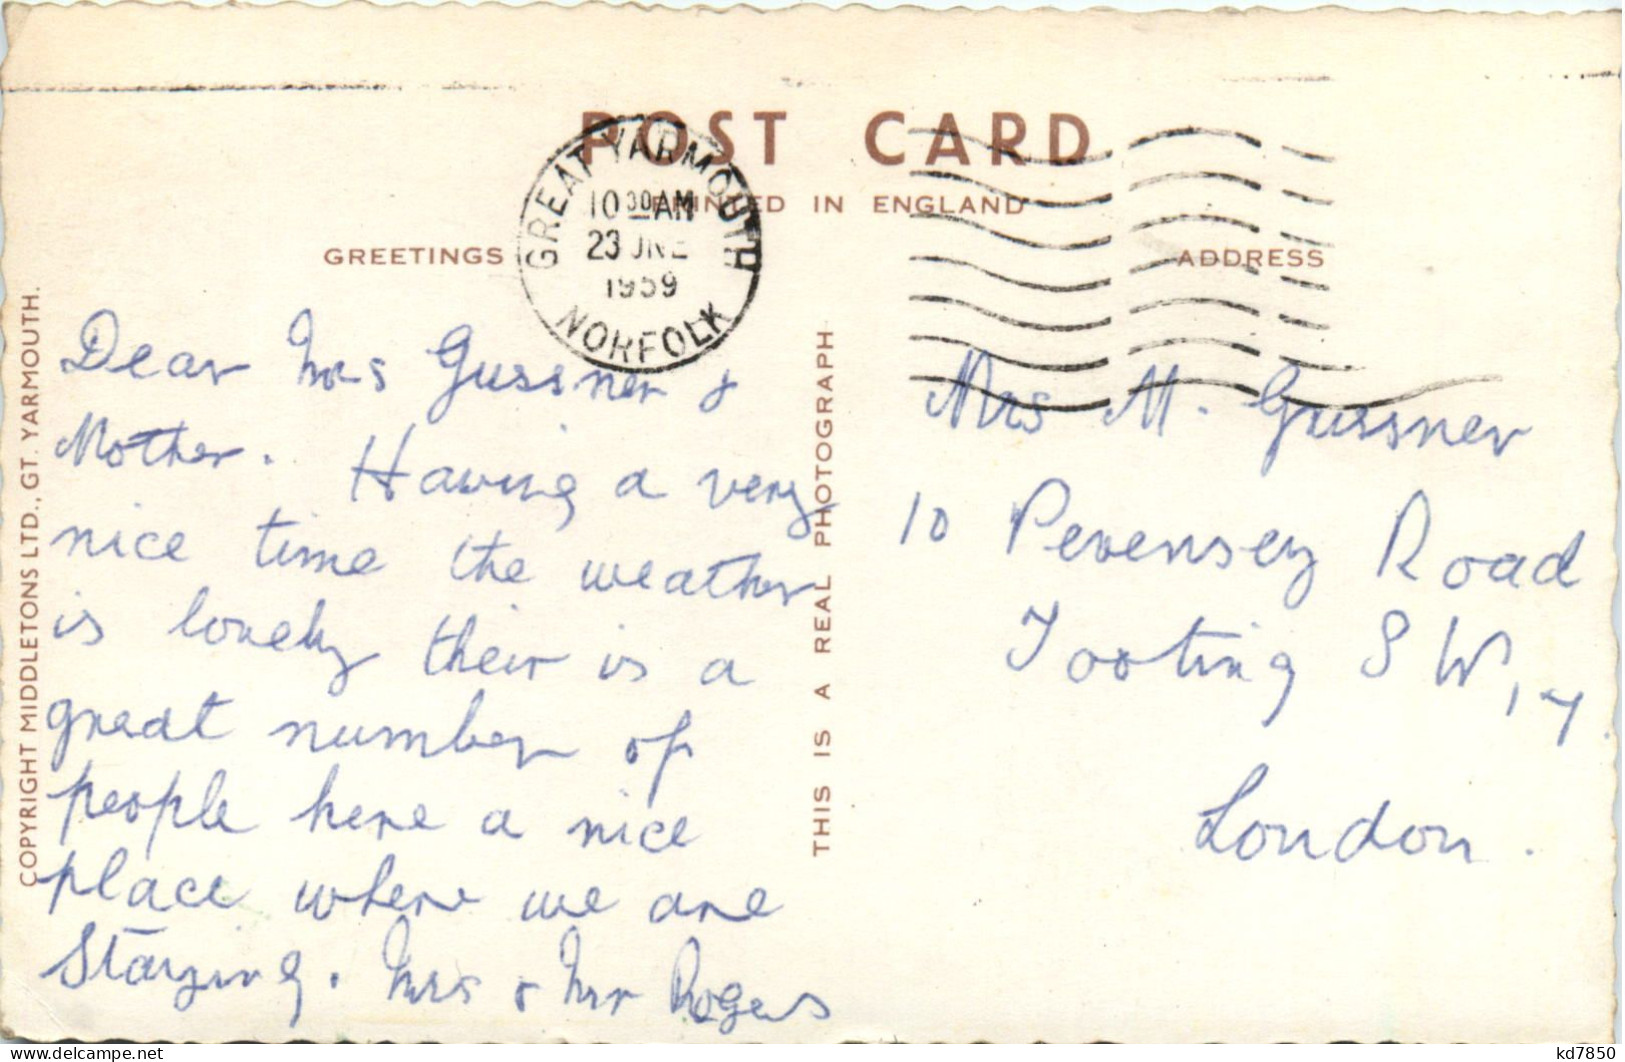 POST CARD
PRINTED IN ENGLAND
GREETINGS
ADDRESS
GREAT YARMOUTH
10 30 AM
23 JNE
1959
NORFOLK
COPYRIGHT MIDDLETONS LTD., GT. YARMOUTH.
Dear Mrs Gussner &
Mother. Having a very
nice time the weather
is lovely their is a
great number of
people here a nice
place where we are
Staying. Mrs & Mr Rogers
THIS IS A REAL PHOTOGRAPH
Mrs M. Gussner
10 Pevensey Road
Tooting S W, 17
London.
kd7850